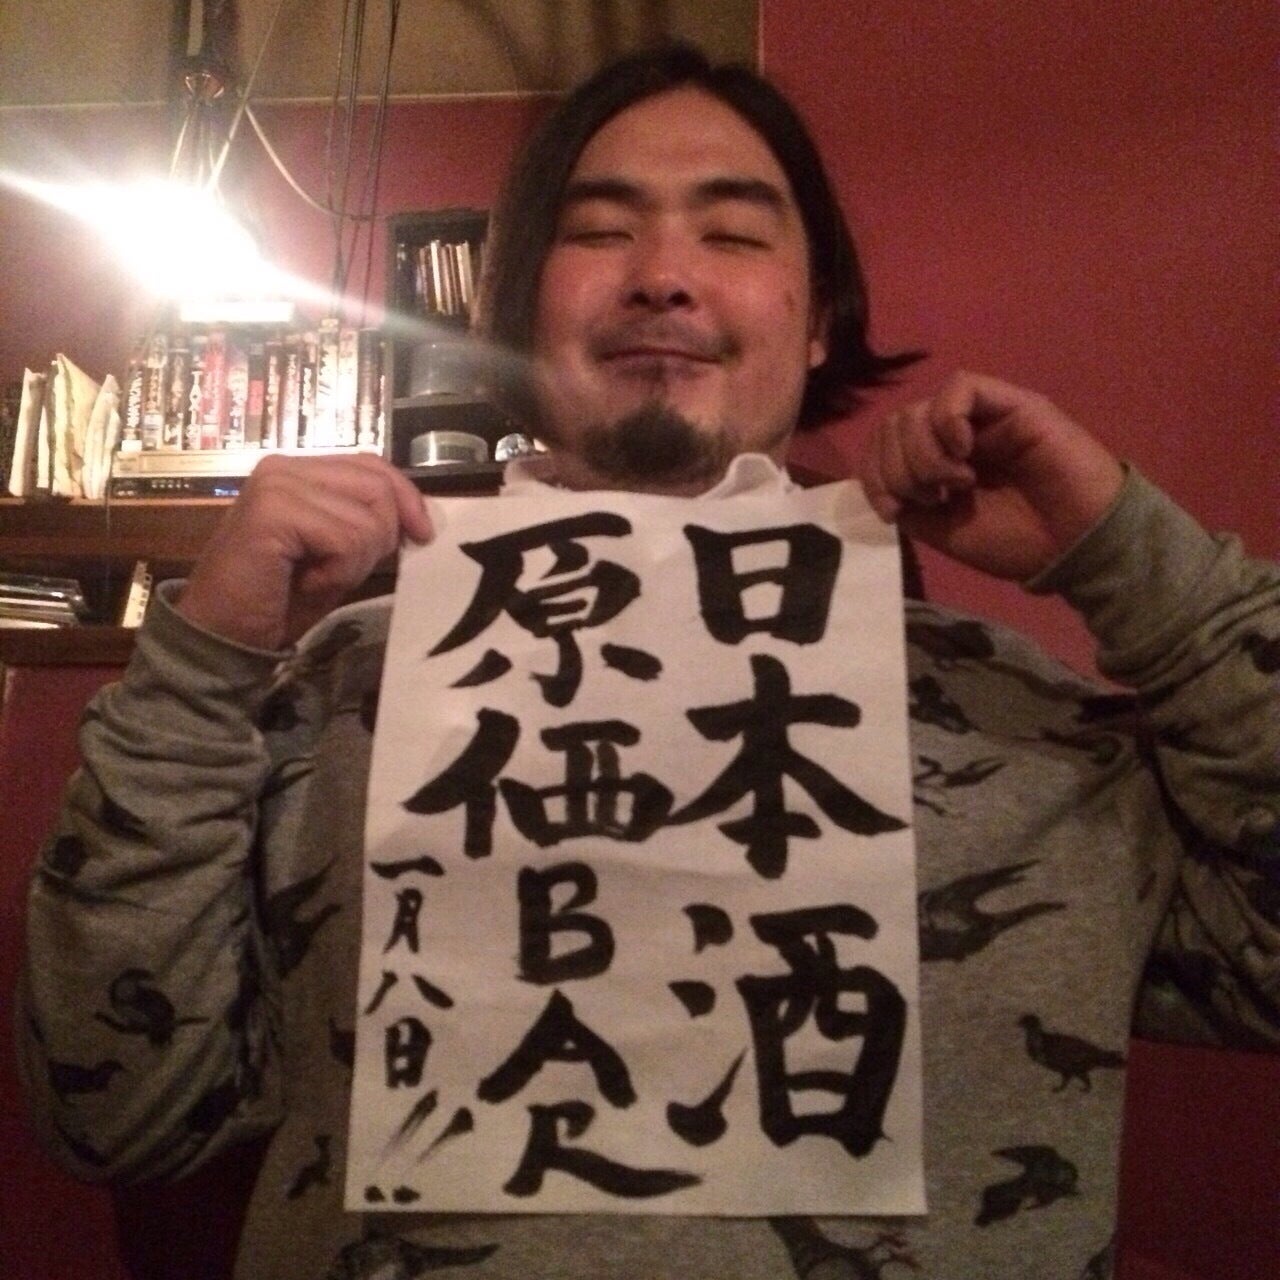 日本酒
原価BAR
一月八日!!